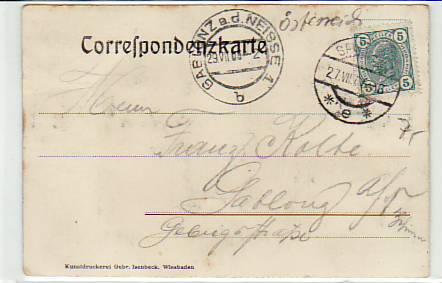 Österreich
Correspondenzkarte
GABLONZ a.d. NEISSE 1
29 VII 09
b
5 5
5 5
27 VII
* e *
Herrn
Franz Kolbe
Gablonz a/N
Gebirgsstraße
Böhmen
Kunstdruckerei Gebr. Isenbeck, Wiesbaden